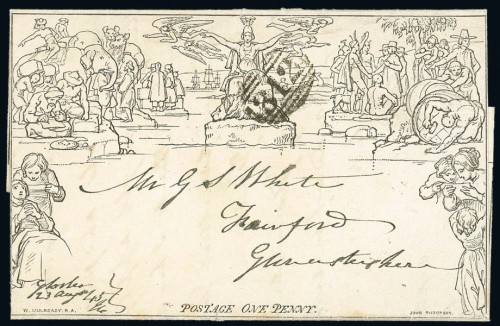 Mr G S White
Fairford
Gloucestershire
23 Augt
POSTAGE ONE PENNY.
W. MULREADY, R.A.
JOHN THOMPSON.